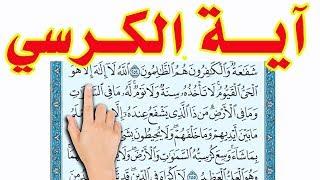 آية الكرسي
شَفَٰعَةٌ وَٱلْكَٰفِرُونَ هُمُ ٱلظَّٰلِمُونَ ٢٥٤ ٱللَّهُ لَآ إِلَٰهَ إِلَّا هُوَ
ٱلْحَىُّ ٱلْقَيُّومُ لَا تَأْخُذُهُۥ سِنَةٌ وَلَا نَوْمٌ لَّهُۥ مَا فِى ٱلسَّمَٰوَٰتِ
وَمَا فِى ٱلْأَرْضِ مَن ذَا ٱلَّذِى يَشْفَعُ عِندَهُۥٓ إِلَّا
مَا بَيْنَ أَيْدِيهِمْ وَمَا خَلْفَهُمْ وَلَا يُحِيطُونَ
بِمَا شَآءَ وَسِعَ كُرْسِيُّهُ ٱلسَّمَٰوَٰتِ وَٱلْأَرْضَ وَلَا
وَهُوَ ٱلْعَلِىُّ ٱلْعَظِيمُ لَآ إِكْرَاهَ فِى ٱلدِّينِ